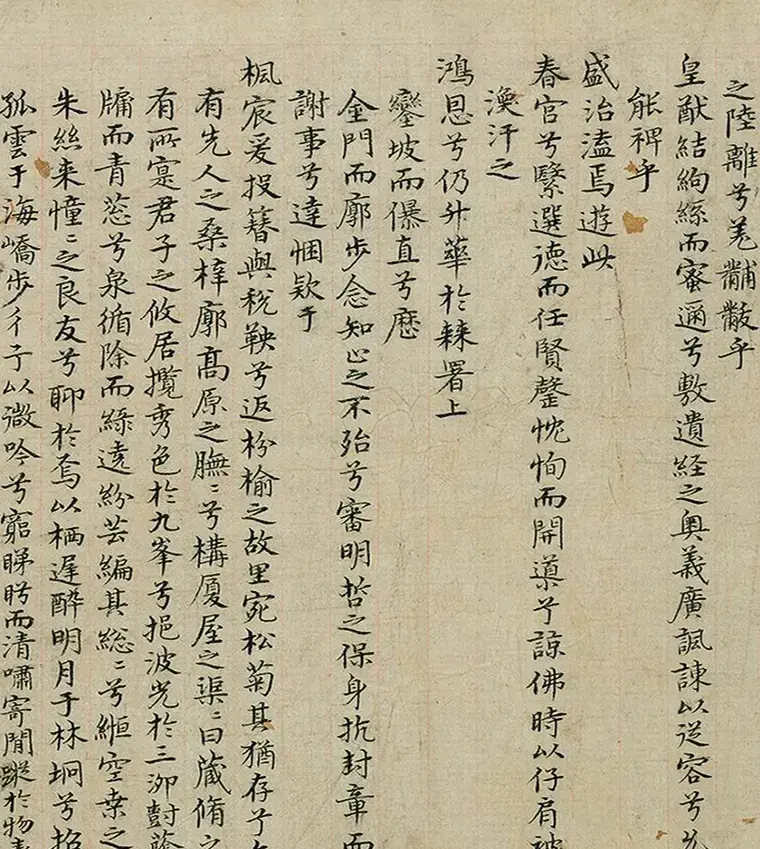 之陸離兮羌黼黻乎
皇猷結絢絲而蜜邇兮敷遺経之奥義廣諷諫以従容兮允
能裨乎
盛治溘焉遊此
春官兮繄選德而任賢罄忱恂而開導兮諒佛時以仔肩被
渙汗之
鴻恩兮仍升華於棘署上
鑾坡而儤直兮歷
金門而廓步念知止之不殆兮審明哲之保身抗封章而
謝事兮達悃欵于
楓宸爰投簪與稅鞅兮返枌榆之故里宛松菊其猶存兮
有先人之桑梓廓高原之膴〻兮構厦屋之渠〻曰蔵脩之
有所寔君子之攸居攬秀色於九峯兮挹波光於三泖對蔭
牖而青葱兮泉循除而綠遶紛芸編其緫〻兮緪空桒之
朱絲来憧〻之良友兮聊於焉以栖遲酔明月于林坰兮招
孤雲于海嶠步彳亍以微吟兮窮睇眄而清嘯寄閒蹤於物